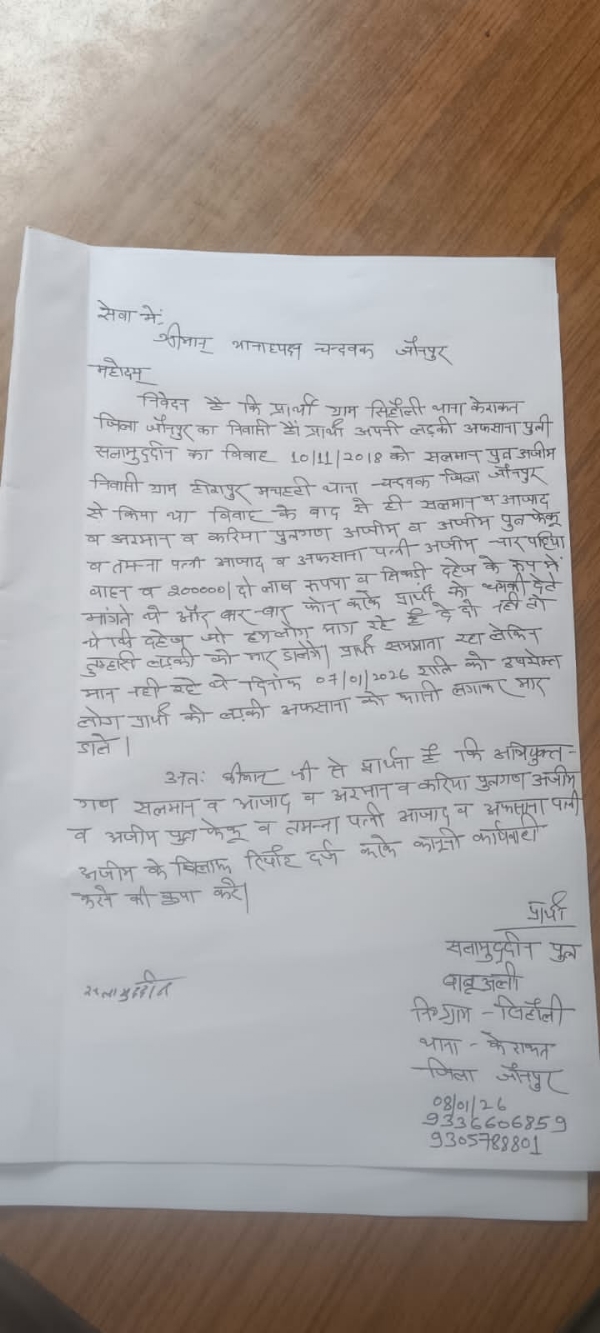 सेवा में,
श्रीमान् थानाध्यक्ष चन्दवक जौनपुर
महोदय
निवेदन है कि प्रार्थी ग्राम सिहौली थाना केराकत
जिला जौनपुर का निवासी हैं। प्रार्थी अपनी लड़की अफसाना पुत्री
सलामुद्दीन का विवाह 10/11/2018 को सलमान पुत्र अजीम
निवासी ग्राम हीरापुर मचहटी थाना चन्दवक जिला जौनपुर
से किया था विवाह के बाद से ही सलमान व आजाद
व अरमान व करिया पुत्रगण अजीम व अजीम पुत्र केकू
व तमन्ना पत्नी आजाद व अफसाना पत्नी अजीम चार पहिया
वाहन व 200000/ दो लाख रूपया व सिकड़ी दहेज के रूप में
मांगते थे और बार-बार फोन करके प्रार्थी को धमकी देते
थे कि दहेज जो हमलोग मांग रहे हैं दे दो नही तो
तुम्हारी लड़की को मार डालेंगे। प्रार्थी समझाता रहा लेकिन
मान नही रहे थे दिनांक 07/01/2026 रात्रि को उपरोक्त
लोग प्रार्थी की लड़की अफसाना को फांसी लगाकर मार
डाले।
अतः श्रीमान जी से प्रार्थना है कि अभियुक्त-
गण सलमान व आजाद व अरमान व करिया पुत्रगण अजीम
व अजीम पुत्र केकू व तमन्ना पत्नी आजाद व अफसाना पत्नी
अजीम के खिलाफ रिपोर्ट दर्ज करके कानूनी कार्यवाही
करने की कृपा करें।
प्रार्थी
सलामुद्दीन पुत्र
बाबूअली
नि०ग्राम - सिहौली
थाना - केराकत
जिला जौनपुर
सलामुद्दीन
08/01/26
9336606859
9305788801